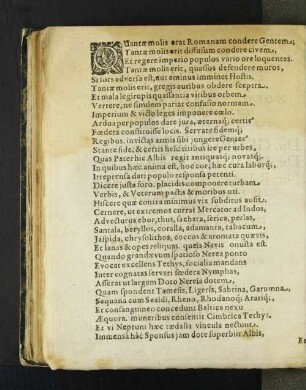 Tantæ molis erat Romanam condere Gentem.
Tantæ molis erit diffusum condere civem,
Et regere imperio populos vario ore loquentes.
Tantæ molis erit, quassos defendere muros,
Si sors adversa est, aut eminus imminet Hostis.
Tantæ molis erit, gregis auribus obdere sceptra,
Et mala legirupis quassantia viribus orbem
Vertere, ne similem pariat confusio normam,
Imperium & victo leges imponere cœlo.
Ardua per populos dare jura, æternaq; certis
Fœdera constituisse locis. Servare fidemq;
Regibus, invictas armis sibi jungere Gentes
Stante fide, & certis felicitibus ire per urbes,
Quas Pater hic Albis regit antiquasq; novasq;.
In quibus hæc anima est, hoc cor, hæc cura laborq;
Irreprensa dari populo responsa petenti.
Dicere justa foro. placidis componere turbam
Verbis, & Veterum pactis & moribus uti.
Hiscere quæ contra minimus vix subditus ausit.
Cernere, ut extremos currat Mercator ad Indos,
Advecturus ebur, thus, sachara, serica, perlas,
Santala, beryllos, coralla, adamanta, tabacum,
Jaspida, chrysolithos, coccos & aromata quævis,
Et lanas & opes reliquas, queis Navis onusta est.
Quando grandævum spatioso Neres ponto
Evocat excellens Tethys, socialia mandans
Inter cognatas servari fœdera Nymphas,
Asserat ut largam Doto Nereia dotem,
Quam spondent Tamesis, Ligeris, Sabrina, Garumna,
Sequana cum Scaldi, Rheno, Rhodanoq; Arariq;,
Et consanguineo concedunt Baltica nexu
Æquora, muneribus consensit Cimbrica Tethys.
Et vi Neptuni hæc cædalia vincula nectunt.
Immensâ hâc Sponsus jam dote superbiit Albis,
Et